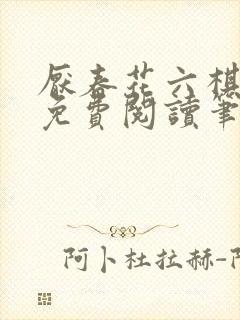 厭春花六棋
免費閱讀筆
阿卜杜拉赫-阿